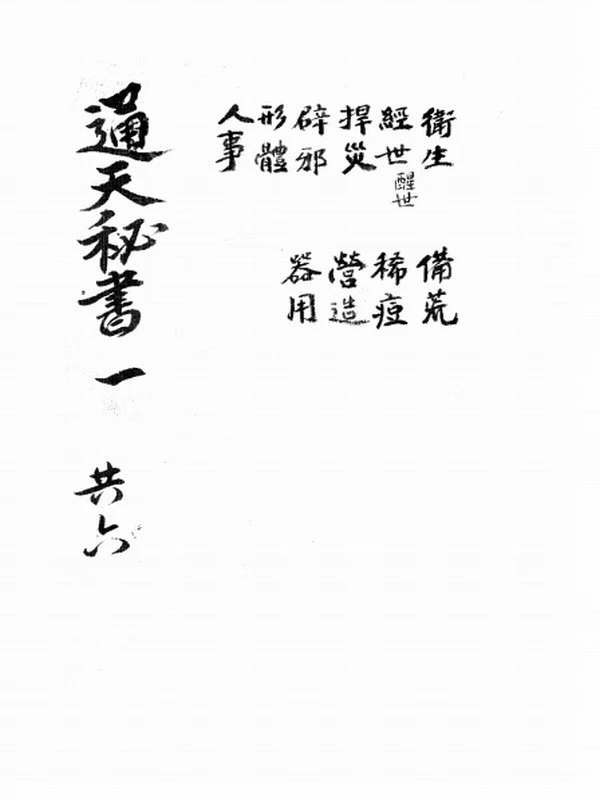 衛生 備荒
經世 醒世 稀痘
捍災 營造
辟邪 器用
形體
人事
通天秘書 一 共六